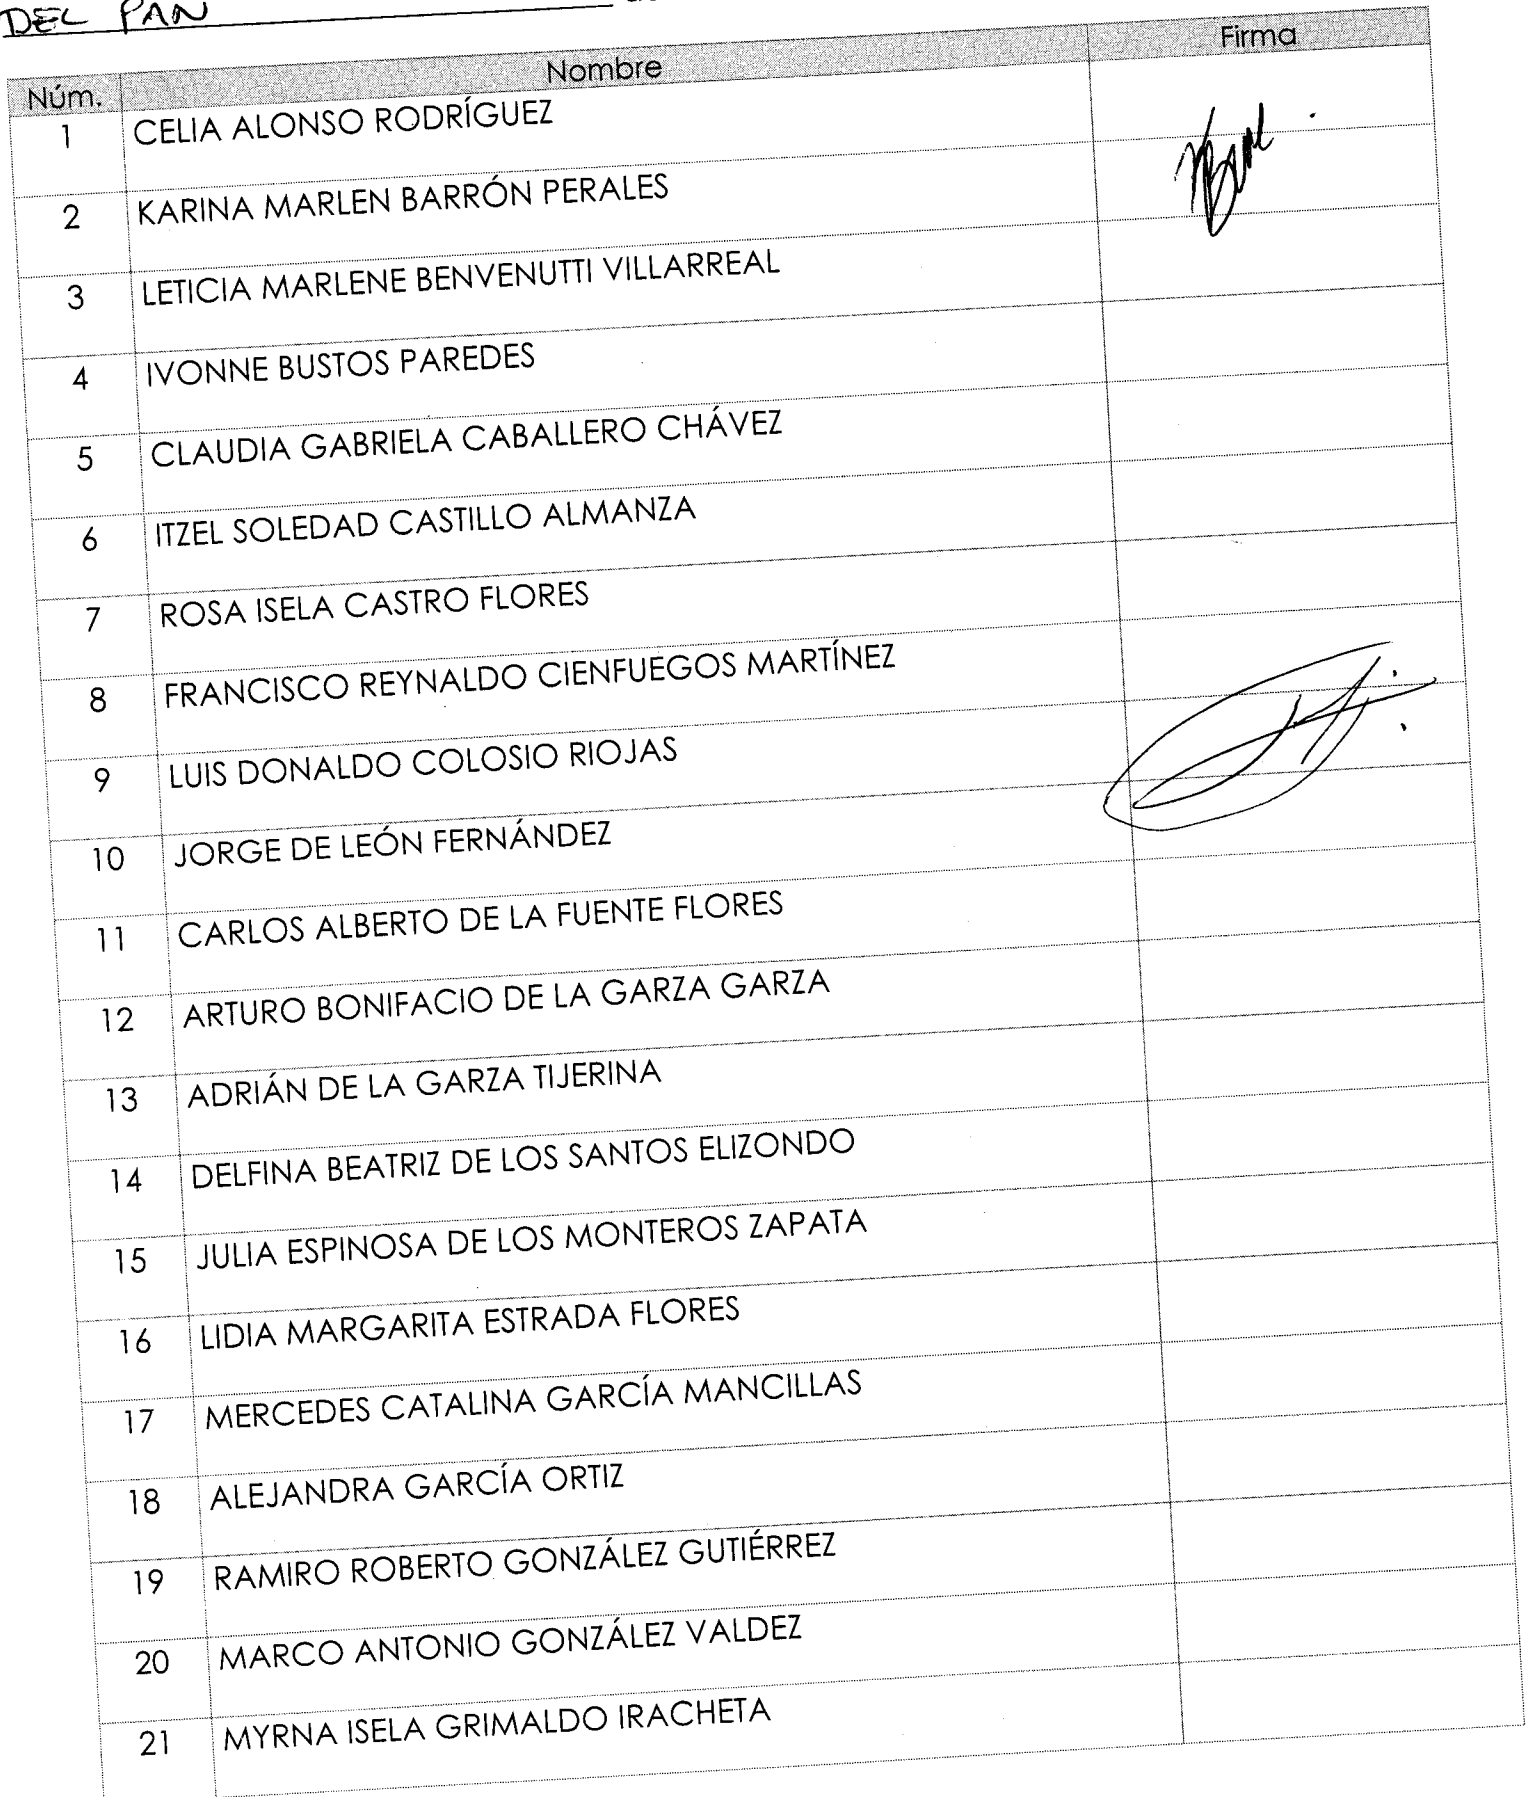 DEL PAN
Núm. Nombre Firma
1 CELIA ALONSO RODRÍGUEZ
2 KARINA MARLEN BARRÓN PERALES
3 LETICIA MARLENE BENVENUTTI VILLARREAL
4 IVONNE BUSTOS PAREDES
5 CLAUDIA GABRIELA CABALLERO CHÁVEZ
6 ITZEL SOLEDAD CASTILLO ALMANZA
7 ROSA ISELA CASTRO FLORES
8 FRANCISCO REYNALDO CIENFUEGOS MARTÍNEZ
9 LUIS DONALDO COLOSIO RIOJAS
10 JORGE DE LEÓN FERNÁNDEZ
11 CARLOS ALBERTO DE LA FUENTE FLORES
12 ARTURO BONIFACIO DE LA GARZA GARZA
13 ADRIÁN DE LA GARZA TIJERINA
14 DELFINA BEATRIZ DE LOS SANTOS ELIZONDO
15 JULIA ESPINOSA DE LOS MONTEROS ZAPATA
16 LIDIA MARGARITA ESTRADA FLORES
17 MERCEDES CATALINA GARCÍA MANCILLAS
18 ALEJANDRA GARCÍA ORTIZ
19 RAMIRO ROBERTO GONZÁLEZ GUTIÉRREZ
20 MARCO ANTONIO GONZÁLEZ VALDEZ
21 MYRNA ISELA GRIMALDO IRACHETA